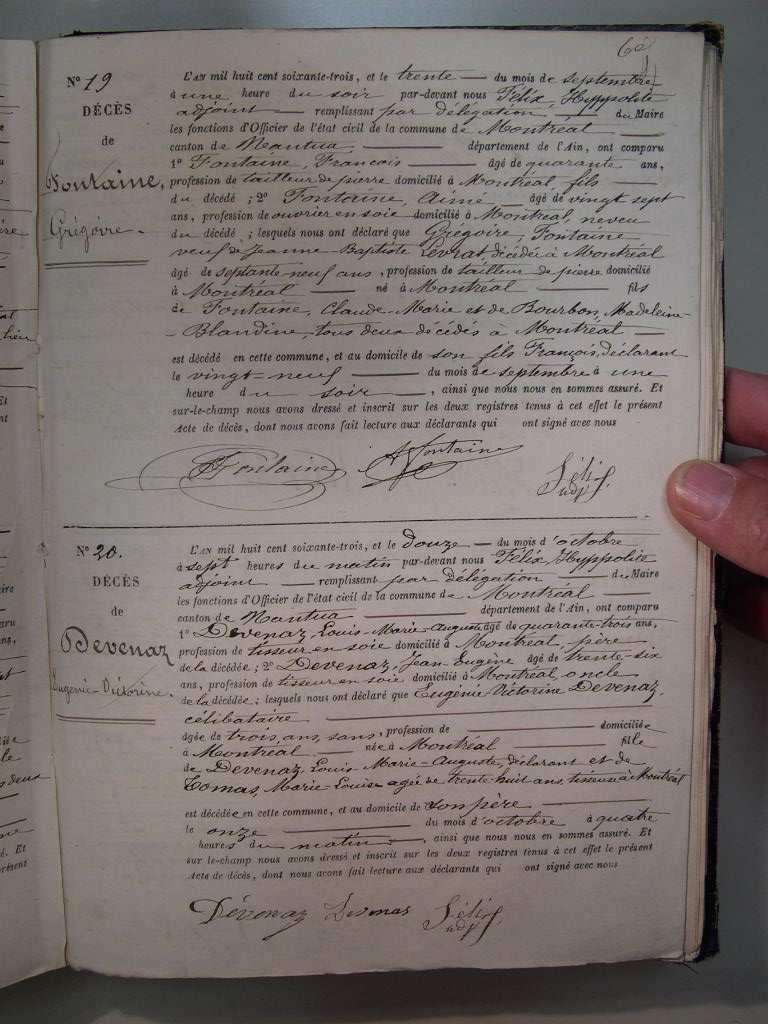 Nº 19
DÉCÈS
de
Fontaine,
Grégoire.
L'AN mil huit cent soixante-trois, et le trente du mois de septembre
à une heure du soir par-devant nous Félix, Hyppolite
adjoint remplissant par délégation du Maire
les fonctions d'Officier de l'état civil de la commune de Montréal
canton de Nantua, département de l'Ain, ont comparu
1º Fontaine, François âgé de quarante ans,
profession de tailleur de pierre domicilié à Montréal, fils
du décédé ; 2º Fontaine, Aimé âgé de vingt sept
ans, profession de ouvrier en soie domicilié à Montréal, neveu
du décédé ; lesquels nous ont déclaré que Grégoire, Fontaine
veuf de Jeanne-Baptiste Levrat, décédée à Montréal
âgé de septante-neuf ans, profession de tailleur de pierre domicilié
à Montréal né à Montréal fils
de Fontaine, Claude-Marie et de Bourbon, Madeleine-
-Blandine, tous deux décédés à Montréal
est décédé en cette commune, et au domicile de son fils François, déclarant
le vingt-neuf du mois de septembre à une
heure du soir, ainsi que nous nous en sommes assuré. Et
sur-le-champ nous avons dressé et inscrit sur les deux registres tenus à cet effet le présent
Acte de décès, dont nous avons fait lecture aux déclarants qui ont signé avec nous
Fontaine A Fontaine Félix
adj
Nº 20.
DÉCÈS
de
Devenaz
Eugénie-Victorine.
L'AN mil huit cent soixante-trois, et le douze du mois d'octobre
à sept heures du matin par-devant nous Félix, Hyppolite
adjoint remplissant par délégation du Maire
les fonctions d'Officier de l'état civil de la commune de Montréal
canton de Nantua département de l'Ain, ont comparu
1º Devenaz, Louis-Marie-Auguste âgé de quarante-trois ans,
profession de tisseur en soie domicilié à Montréal, père
de la décédée ; 2º Devenaz, Jean Eugène âgé de trente-six
ans, profession de tisseur en soie domicilié à Montréal, oncle
de la décédée ; lesquels nous ont déclaré que Eugénie-Victorine Devenaz,
célibataire
âgée de trois ans, sans, profession de domiciliée
à Montréal née à Montréal fille
de Devenaz, Louis-Marie-Auguste, déclarant et de
Tomas, Marie-Louise agée de trente-huit ans, tisseuse à Montréal
est décédée en cette commune, et au domicile de son père
le onze du mois d'octobre à quatre
heures du matin, ainsi que nous nous en sommes assuré. Et
sur le-champ nous avons dressé et inscrit sur les deux registres tenus à cet effet le présent
Acte de décès, dont nous avons fait lecture aux déclarants qui ont signé avec nous
Dévenaz Félix
adj